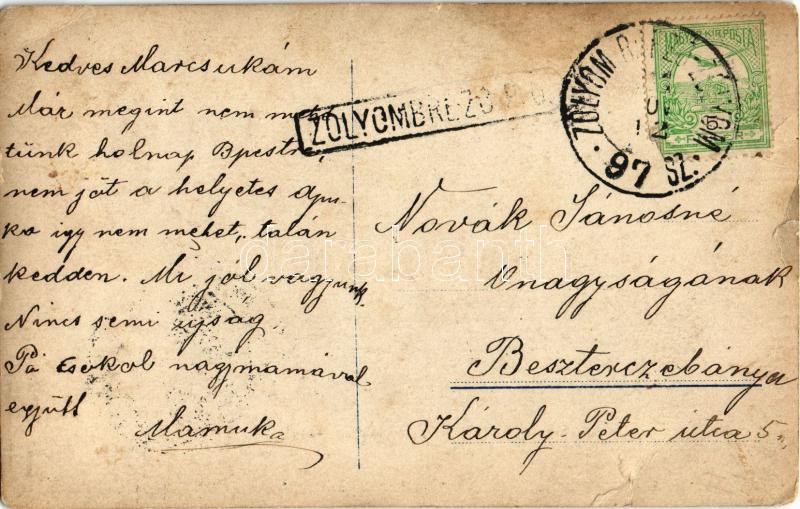 Kedves Marcsukám
Már megint nem me
tünk holnap Bpestre,
nem jöt a helyetes Apu-
ka igy nem mehet, talán
kedden. Mi jól vagyunk.
Nincs semi ujság
Pá csokol nagymamával
együtt
Mamuka
ZÓLYOMBREZÓ
ZÓLYOM B
97 SZ.
MAGYAR KIR. POSTA
Novák Jánosné
Őnagyságának
Beszterczebánya
Károly Péter utca 5.
darabanth